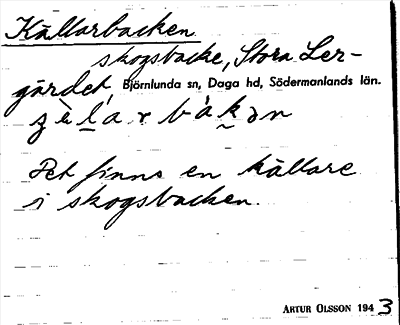 Källarbacken
skogsbacke, Stora Ler-
gärdet, Björnlunda sn, Daga hd, Södermanlands län.
Det finns en källare
i skogsbacken.
ARTUR OLSSON 1943